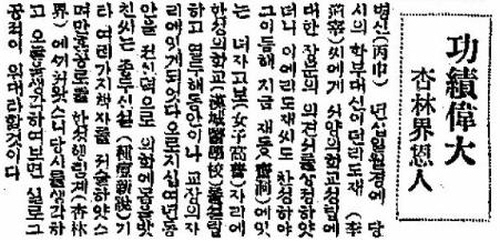 功績偉大
杏林界恩人
병신(丙申) 년십일월경에 당
시의 학부대신이던리도재 (李
道宰)씨에게 서양의학교설립에
대한 장문의 의견서를상정하얏
더니 이에리도재씨도 찬성하야
그이듬해 지금 재동(齋洞)에잇
는 녀자고보(女子高普)자리에
한성의학교(漢城醫學校)를설립
하고 열두해동안이나 교장의자
리에잇게되엇다오로지십여년동
안을 전신력으로 의학에몸을밧
친씨는 종두신설(種痘新說)기
타 여러가지책자를 저술하얏스
며만흔공로를 한성행림계(杏林
界)에끼처왓스니당시를생각하
고 오늘을생각하여보면 실로그
공적이 위대라할것이다